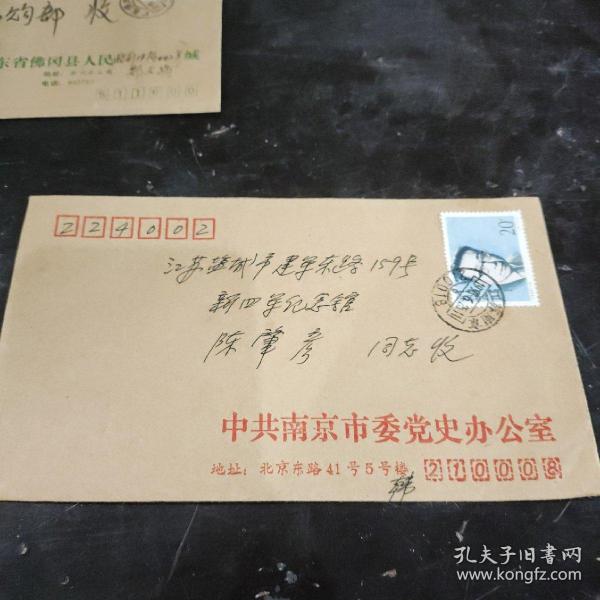 收
东省佛冈县人民
224002
20
江苏盐城市建军东路159号
新四军纪念馆
陈肇彦 同志收
中共南京市委党史办公室
地址：北京东路41号5号楼 210008
韩
孔夫子旧书网
www.kongfz.com